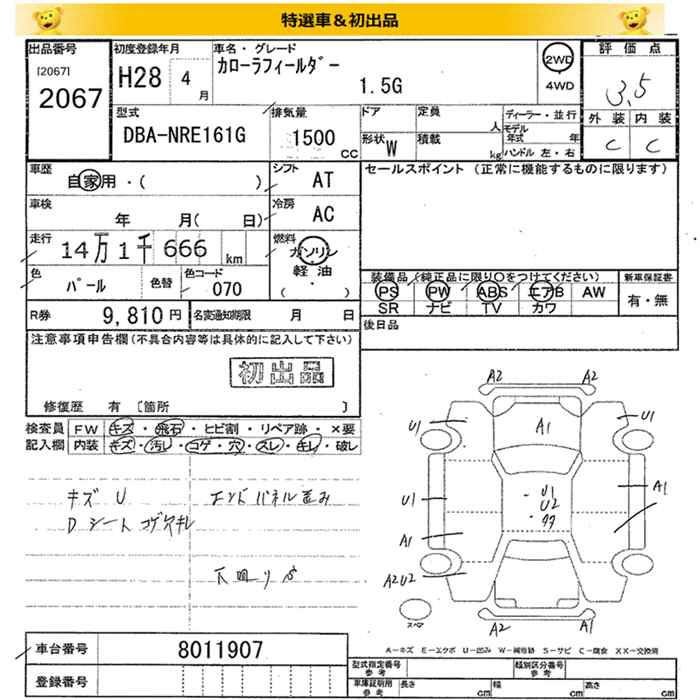 特選車＆初出品
出品番号
[2067]
2067
初度登録年月
H28 4月
車名・グレード
カローラフィールダー
1.5G
2WD
4WD
評価点
3.5
外装 内装
C C
型式
DBA-NRE161G
排気量
1500 CC
ドア
定員
人
形状 W
積載
kg
ディーラー・並行
モデル年式 年
ハンドル 左・右
車歴
自家用・( )
シフト AT
セールスポイント (正常に機能するものに限ります)
車検
年 月( 日)
冷房 AC
走行
14万1千666km
燃料
ガソリン
軽油
( ・ )
色
パール
色替
色コード
070
装備品(純正品に限り○をつけてください)
PS PW ABS エアB AW
SR ナビ TV カワ
新車保証書
有・無
R券
9,810円
名変通知期限 月 日
後日品
注意事項申告欄(不具合内容等は具体的に記入して下さい)
初出品
修復歴 有 [箇所 ]
検査員記入欄
FW キズ・飛石・ヒビ割・リペア跡・×要
内装 キズ・汚レ・コゲ・穴・スレ・キレ・破レ
キズ U
エンドパネル歪み
D シート コゲ穴キレ
下回りサビ
A2 A2
U1 A1 U1
U1 U1 A1
U2
A1
A2U2
スペア A2 A1
A－キズ E－エクボ U－凹み W－補修跡 S－サビ C－腐食 XX－交換済
車台番号
8011907
登録番号
型式指定番号 参考
類別区分番号 参考
車庫証明用 参考
長さ cm
幅 cm
高さ cm